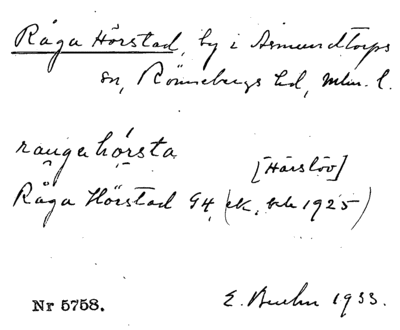 Råga Hörstad, by i Asmundtorps
sn, Rönnebergs hd, Mlm. l.
raugahörsta
[Härslöv]
Råga Hörstad G4 (EK, bl. 1925)
Nr 5758.
E. 1933.